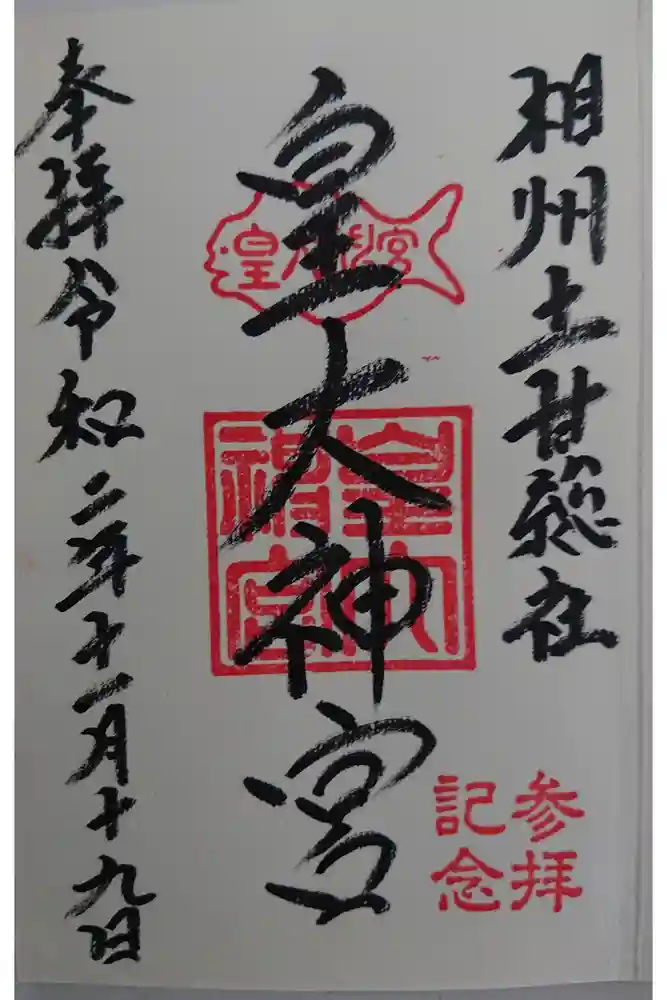 相州土甘総社
皇大神宮
奉拝令和二年十一月十九日
皇大神宮
皇大神宮
参拝
記念